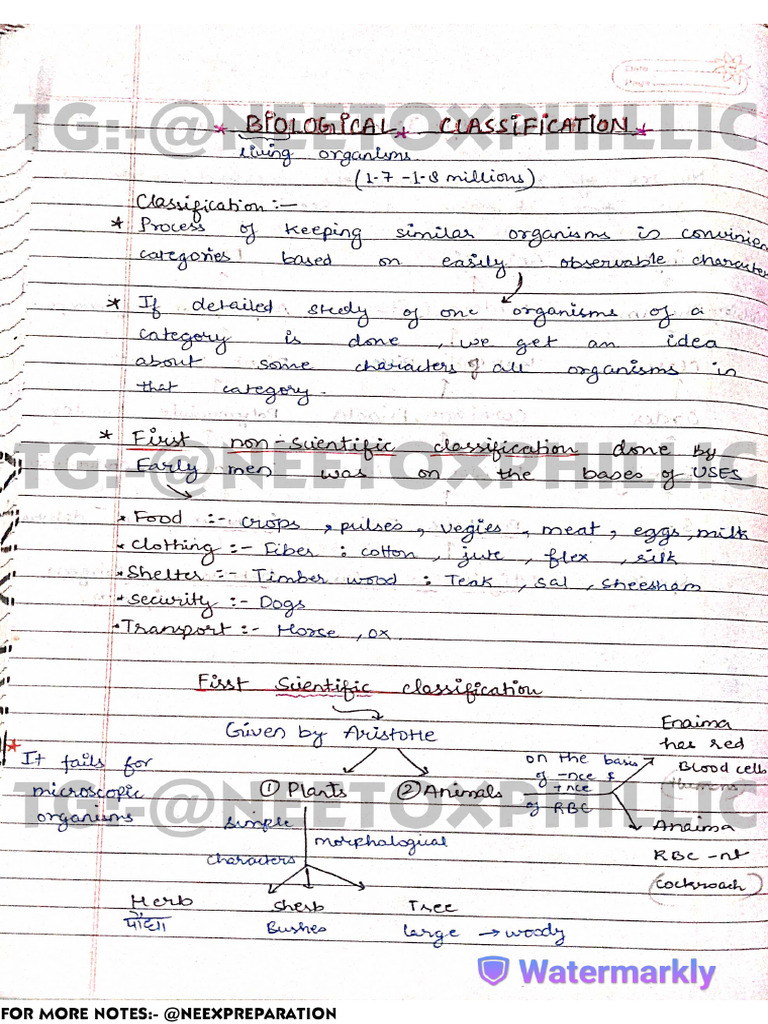 Date
Page
TG:-@NEETOXPHILLIC
* BIOLOGICAL * CLASSIFICATION *
living organisms
(1.7 -1.8 millions)
Classification :-
* Process of keeping similar organisms is convinien
categories based on easily observable character
* If detailed study of one organisms of a
category is done , we get an idea
about some characters of all organisms in
that category.
* First non-scientific classification done by
TG:-@NEETOXPHILLIC
Early men was on the bases of USES
* Food :- crops , pulses , vegies , meat , eggs, milk
* Clothing :- Fiber : cotton , jute , flex , silk
* Shelter :- Timber wood : Teak , sal , sheesham
* Security :- Dogs
* Transport :- Horse , ox.
First Scientific classification
Given by Aristotle
* It fails for
microscopic
organisms
① Plants ② Animals
on the basis
of -nce &
+nce
of RBC
Enaima
has red
Blood cells
(Humans)
TG:-@NEETOXPHILLIC
Anaima
RBC -nt
(cockroach)
simple
morphological
characters
Herb Sherb Tree
पौधा Bushes large → woody
Watermarkly
FOR MORE NOTES:- @NEEXPREPARATION